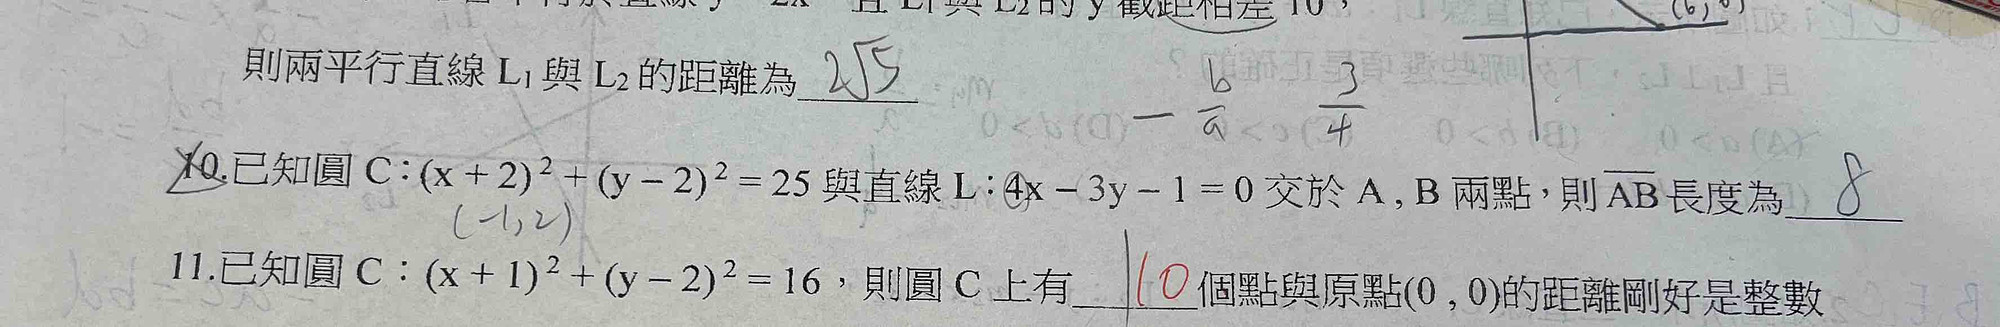 y 截距相差 10，
(6,0)
則兩平行直線 L₁ 與 L₂ 的距離為 2√5
- b/a 3/4
10.已知圓 C：(x + 2)² + (y − 2)² = 25 與直線 L：4x − 3y − 1 = 0 交於 A , B 兩點，則 AB 長度為 8
(-1,2)
11.已知圓 C：(x + 1)² + (y − 2)² = 16，則圓 C 上有 10 個點與原點(0 , 0)的距離剛好是整數